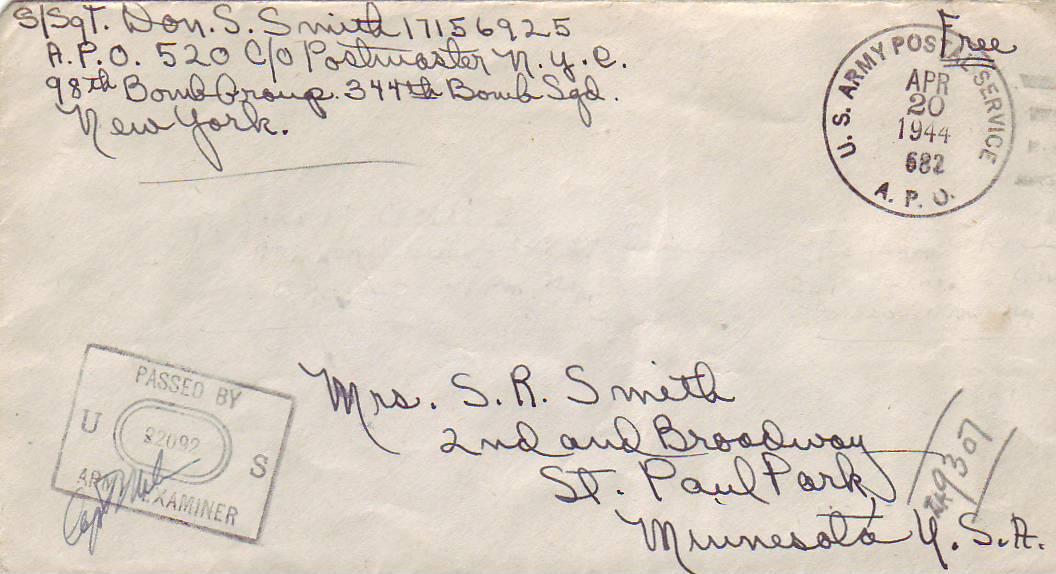 S/Sgt. Don. S. Smith 17156925
A.P.O. 520 C/O Postmaster N.Y.C.
98th Bomb Group. 344th Bomb Sqd.
New York.
Free
U.S. ARMY POSTAL SERVICE
APR
20
1944
682
A.P.O.
PASSED BY
U 22092 S
ARMY EXAMINER
Capt
Mrs. S. R. Smith
2nd and Broadway
St. Paul Park,
Minnesota U.S.A.